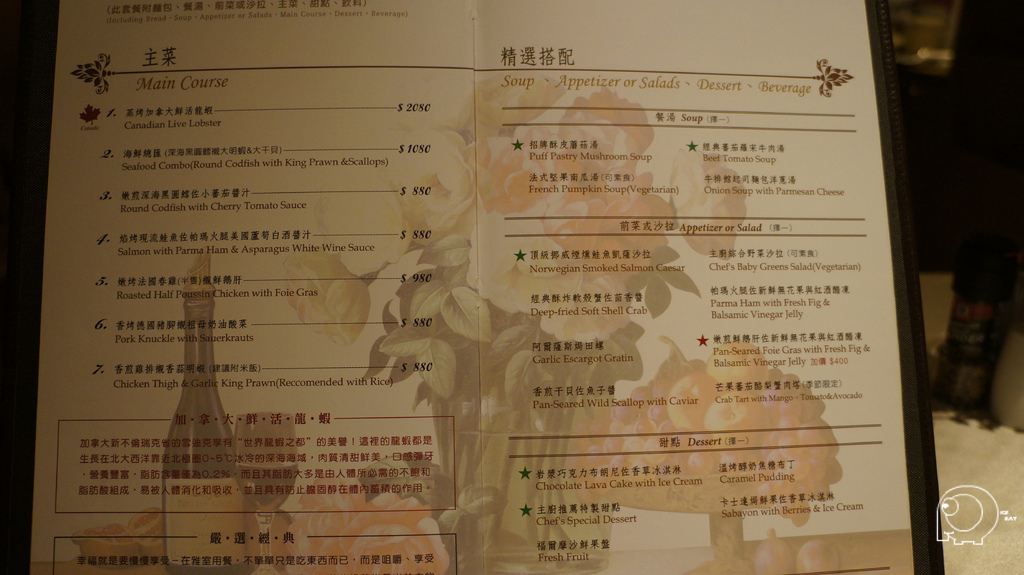 (此套餐附麵包、餐湯、前菜或沙拉、主菜、甜點、飲料)
(Including Bread、Soup、Appetizer or Salads、Main Course、Dessert、Beverage)
主菜
Main Course
Canada
1. 蒸烤加拿大鮮活龍蝦 $ 2080
Canadian Live Lobster
2. 海鮮總匯 (深海黑圓鱈襯大明蝦&大干貝) $1080
Seafood Combo(Round Codfish with King Prawn &Scallops)
3. 嫩煎深海黑圓鱈佐小蕃茄醬汁 $ 880
Round Codfish with Cherry Tomato Sauce
4. 焰烤現流鮭魚佐帕瑪火腿美國蘆筍白酒醬汁 $ 880
Salmon with Parma Ham & Asparagus White Wine Sauce
5. 嫩烤法國春雞(半隻)襯鮮鵝肝 $ 980
Roasted Half Poussin Chicken with Foie Gras
6. 香烤德國豬腳襯祖母奶油酸菜 $ 880
Pork Knuckle with Sauerkrauts
7. 香煎雞排襯香蒜明蝦 (建議附米飯) $ 880
Chicken Thigh & Garlic King Prawn(Reccomended with Rice)
加・拿・大・鮮・活・龍・蝦
加拿大新不倫瑞克省的雪迪克享有"世界龍蝦之都"的美譽！這裡的龍蝦都是
生長在北大西洋靠近北極圈0~5℃冰冷的深海海域，肉質清甜鮮美，口感彈牙
、營養豐富、脂肪含量僅為0.2%，而且其脂肪大多是由人體所必需的不飽和
脂肪酸組成，易被人體消化和吸收，並且具有防止膽固醇在體內蓄積的作用。
嚴・選・經・典
幸福就是要慢慢享受－在雅室用餐，不單單只是吃東西而已，而是咀嚼、享受
精選搭配
Soup、Appetizer or Salads、Dessert、Beverage
餐湯 Soup (擇一)
★ 招牌酥皮蘑菇湯
Puff Pastry Mushroom Soup
★ 經典蕃茄羅宋牛肉湯
Beef Tomato Soup
法式堅果南瓜湯(可素食)
French Pumpkin Soup(Vegetarian)
牛排館起司麵包洋蔥湯
Onion Soup with Parmesan Cheese
前菜或沙拉 Appetizer or Salad (擇一)
★ 頂級挪威煙燻鮭魚凱薩沙拉
Norwegian Smoked Salmon Caesar
主廚綜合野菜沙拉(可素食)
Chef's Baby Greens Salad(Vegetarian)
經典酥炸軟殼蟹佐茴香醬
Deep-fried Soft Shell Crab
帕瑪火腿佐新鮮無花果與紅酒醋凍
Parma Ham with Fresh Fig &
Balsamic Vinegar Jelly
阿爾薩斯焗田螺
Garlic Escargot Gratin
★ 嫩煎鮮鵝肝佐新鮮無花果與紅酒醋凍
Pan-Seared Foie Gras with Fresh Fig &
Balsamic Vinegar Jelly 加價 $400
香煎干貝佐魚子醬
Pan-Seared Wild Scallop with Caviar
芒果蕃茄酪梨蟹肉塔(季節限定)
Crab Tart with Mango、Tomato&Avocado
甜點 Dessert (擇一)
★ 岩漿巧克力布朗尼佐香草冰淇淋
Chocolate Lava Cake with Ice Cream
溫烤醇奶焦糖布丁
Caramel Pudding
★ 主廚推薦特製甜點
Chef's Special Dessert
卡士達焗鮮果佐香草冰淇淋
Sabayon with Berries & Ice Cream
福爾摩沙鮮果盤
Fresh Fruit
ICE
EAT